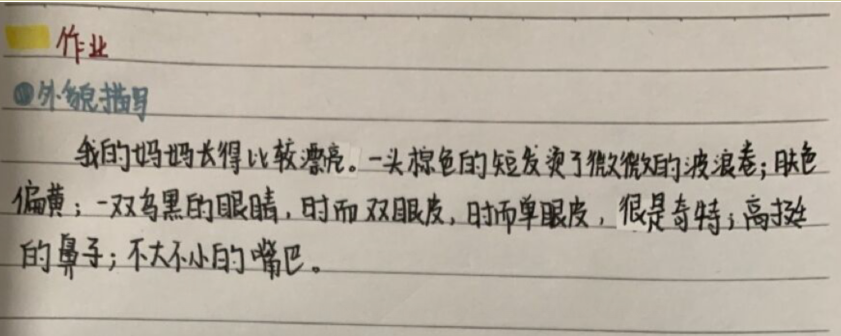 作业
①外貌描写
我的妈妈长得比较漂亮。一头棕色的短发烫了微微的波浪卷；肤色
偏黄；一双乌黑的眼睛，时而双眼皮，时而单眼皮，很是奇特；高挺
的鼻子；不大不小的嘴巴。